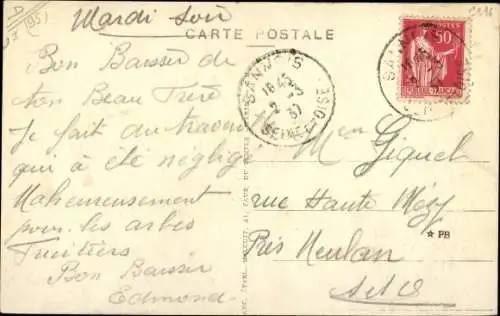 Mardi soir
CARTE POSTALE
Bon Baiser de
ton Beau Frère
Je fait du travail
qui à été négligé
Malheureusement
pour les arbes
Fruitiers
Bon Baiser
Edmond
SANNOIS
18 45
2-3
37
SEINE ET OISE
POSTES
50
Giquel
rue Haute Mézy
★ PB
Près Meulan
S et O
(95)